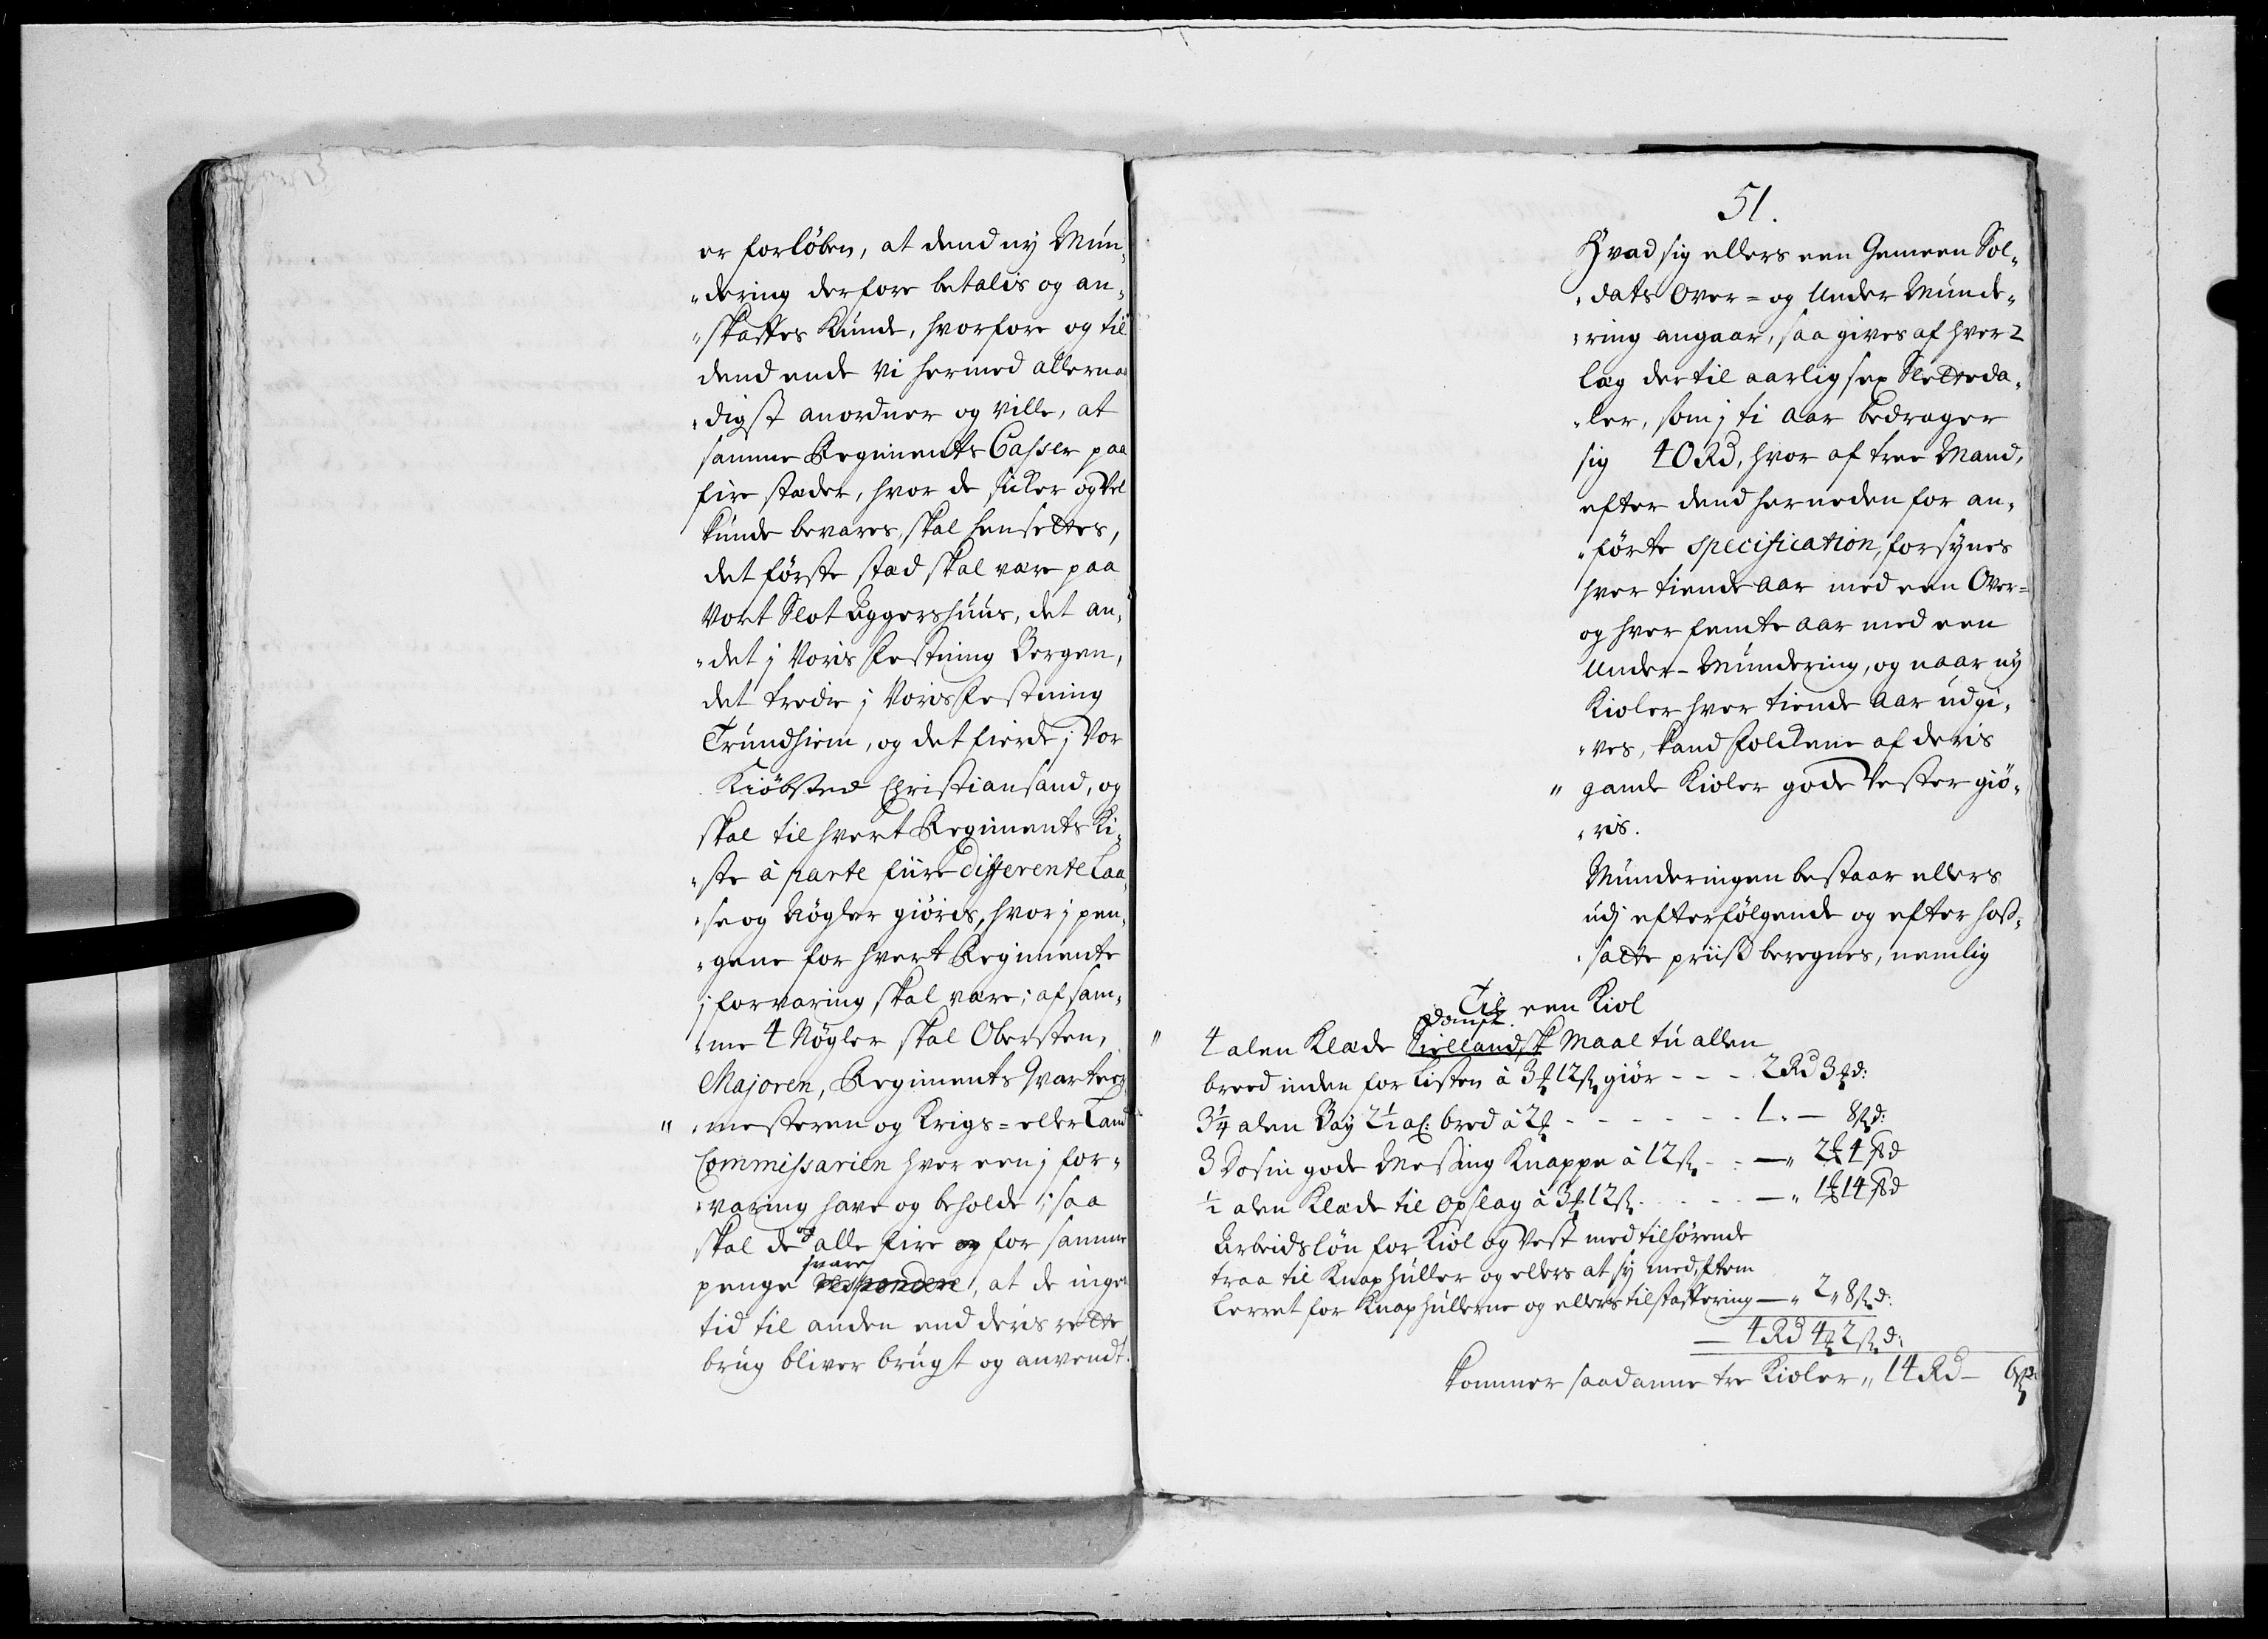 er forlöben, at dend ny Mun-
dering derfore betalis og an-
skaffes kunde, hvorfore og til
dend ende Vi hermed allernaa
digst anordner og ville, at
samme Regiments Casser paa
fire stæder, hvor de sicker og vel
kunde bevares, skal hensettes,
det förste stæd skal være paa
Vort Slot Aggershuus, det an-
det j Voris Festning Bergen,
det tredie j Voris Festning
Trundhiem, og det fierde j Vor
Kiöbsted Christiansand, og
skal til hvert Regiments Ki-
ste à parte fiire differente Laa-
se og Nögler giöris, hvor j pen-
gene for hvert Regimente
j forvaring skal være; af sam-
me 4 Nögler skal Obersten,
Majoren, Regiments Qvarteer
mesteren og Krigs= eller Land
Commissarien hver een j for-
varing have og beholde; saa
skal de og alle fire og for samme
svare
penge respondere, at de ingen
tid til anden end deris rette
brug bliver brugt og anvendt.
51.
Hvad sig ellers een Gemeen Sol-
dats Over= og Under Munde-
ring angaar, saa gives af hver 2
læg dertil aarlig sex Sletteda-
ler, som j ti Aar bedrager
sig 40 Rd, hvor af tree Mand,
efter dend herneden for an-
förte specification, forsynes
hver tiende aar med een Over=
og hver femte aar med een
Under-Mundering, og naar ny
Kioler hver tiende Aar udgi-
ves, kand Folckene af deris
gamle Kioler gode Vester giö-
ris.
Munderingen bestaar ellers
udj efterfölgende og efter hoß-
satte priiß beregnes, nemlig
Til een Kiol
Dansk
4 alen Klæde Siellandsk Maal tu allen
breed inden for Listen à 3 ƶ 12 ß giör - - - 2 Rd 3 ƶ d:
3 1/4 alen Bay 2 1/2 al: bred à 2 ƶ - - - - - 1. — 8 ß d:
3 Dosin gode Messing Knappe à 12 ß - - — „ 2 ƶ 4 ß d
1/2 alen Klæde til Opslag à 3 ƶ 12 ß - - - — „ 1 ƶ 14 ß d
Arbeidslön for Kiol og Vest med tilhörende
traa til Knaphuller og ellers at sy med, item
Lerret for Knaphullerne og ellers tilstaffering — „ 2 „ 8 ß d:
— 4 Rd 4 ƶ 2 ß d:
kommer saadanne tre Kioler „ 14 Rd — 6 ß